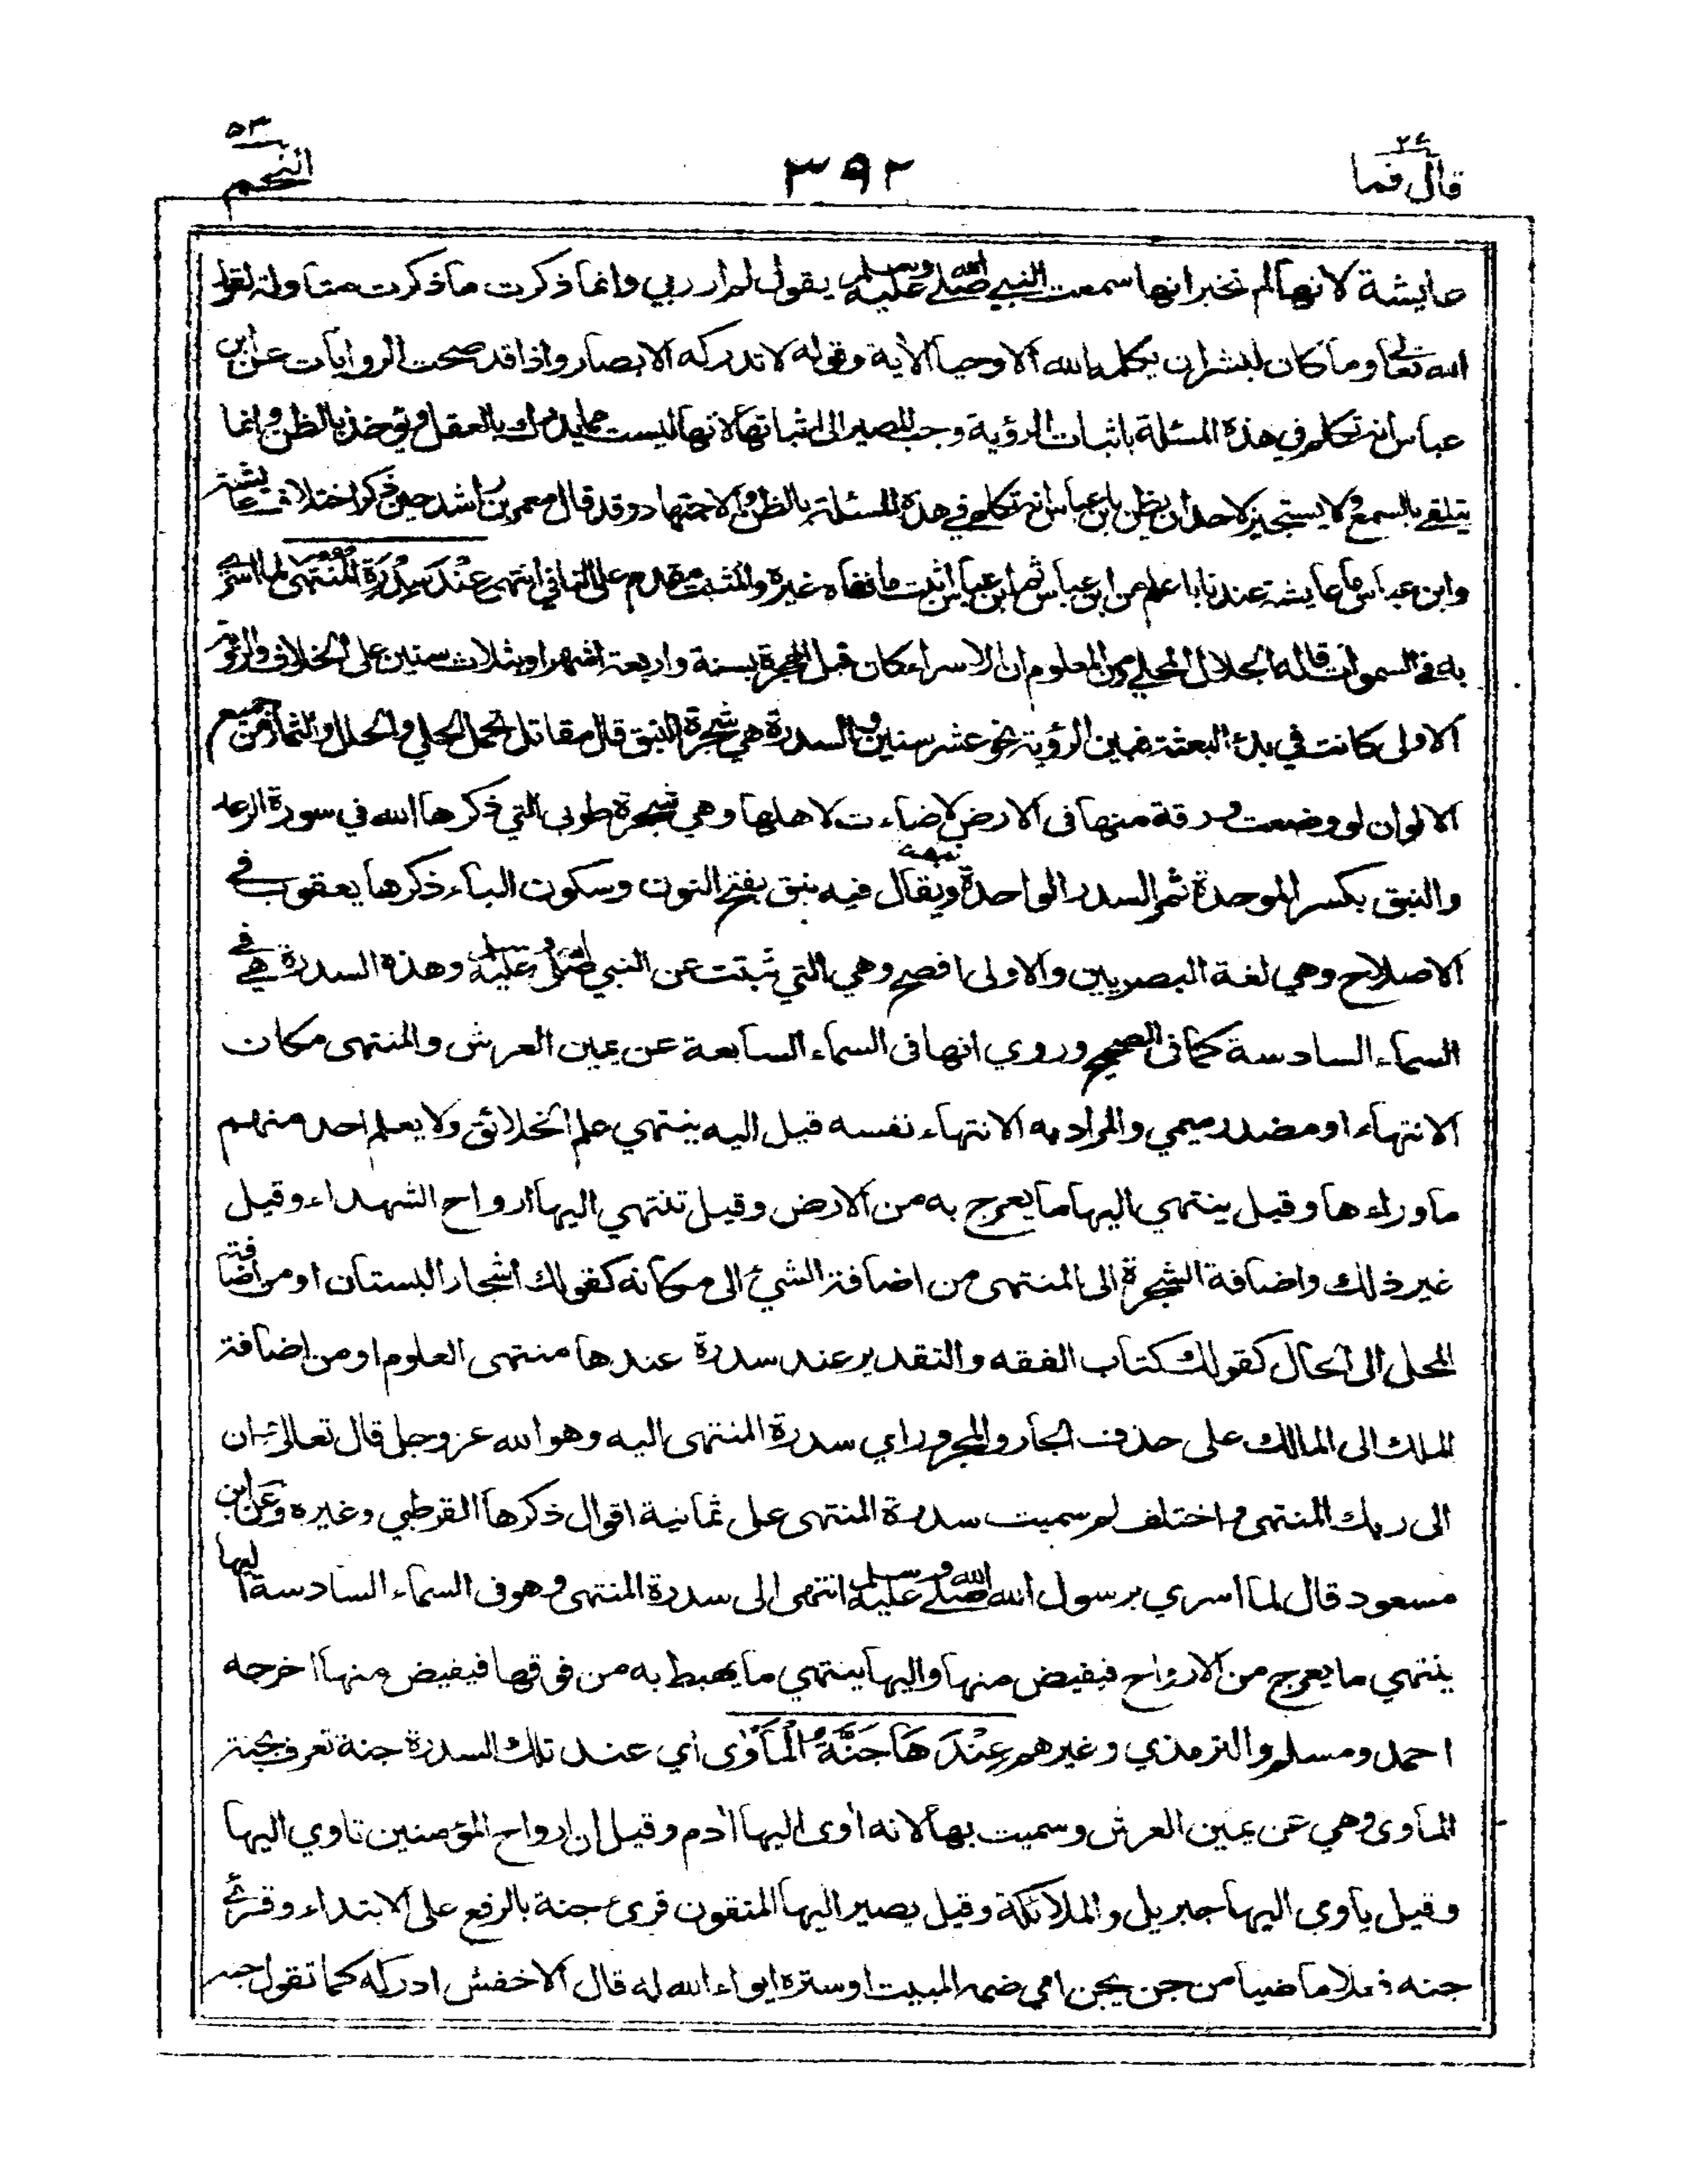 قال فما ٢٧
٣٩٢
النجم ٥٣
عايشة لانها لم تخبر انها سمعت النبي صلى الله عليه وسلم يقول لم ار ربي وانما ذكرت ما ذكرت متاولة لقول
الله تعالى وما كان لبشر ان يكلمه الله الا وحيا الآية وقوله لا تدركه الابصار واذا قد صحت الروايات عن ابن
عباس انه تكلم في هذه المسئلة باثبات الرؤية وجب المصير الى اثباتها لانها ليست مما يدرك بالعقل ويؤخذ بالظن وانما
يتلقى بالسمع ولا يستجيز احد ان يظن بابن عباس انه تكلم في هذه المسئلة بالظن والاجتهاد وقد قال معمر بن راشد حين ذكر اختلاف عايشة
وابن عباس ما عايشة عندنا باعلم من ابن عباس ثم ابن عباس اثبت ما نفاه غيره والمثبت مقدم على النافي انتهى عِنْدَ سِدْرَةِ الْمُنْتَهٰى لما اسري
به في السموات قاله الجلال المحلي ومن المعلوم ان الاسراء كان قبل الهجرة بسنة واربعة اشهر او بثلاث سنين على الخلاف والرؤية
الاولى كانت في بدء البعثة فبين الرؤيتين نحو عشر سنين والسدرة هي شجرة النبق قال مقاتل تحمل الحلي والحلل والثمار من جميع
الالوان لو وضعت ورقة منها في الارض لاضاءت لاهلها وهي شجرة طوبى التي ذكرها الله في سورة الرعد
والنبق بكسر الموحدة ثمر السدر الواحدة نبقة ويقال فيه نبق بفتح النون وسكون الباء ذكرها يعقوب في
الاصلاح وهي لغة البصريين والاولى افصح وهي التي ثبتت عن النبي صلى الله عليه وسلم وهذه السدرة هي في
السماء السادسة كما في الصحيح وروي انها في السماء السابعة عن يمين العرش والمنتهى مكان
الانتهاء او مصدر ميمي والمراد به الانتهاء نفسه قيل اليه ينتهي علم الخلائق ولا يعلم احد منهم
ما وراءها وقيل ينتهي اليها ما يعرج به من الارض وقيل تنتهي اليها ارواح الشهداء وقيل
غير ذلك واضافة الشجرة الى المنتهى من اضافة الشيء الى مكانه كقولك اشجار البستان او من اضافة
المحل الى الحال كقولك كتاب الفقه والتقدير عند سدرة عندها منتهى العلوم او من اضافة
الملك الى المالك على حذف الجار والمجرور اي سدرة المنتهى اليه وهو الله عز وجل قال تعالى ان
الى ربك المنتهى واختلف لم سميت سدرة المنتهى على ثمانية اقوال ذكرها القرطبي وغيره وعن ابن
مسعود قال لما اسري برسول الله صلى الله عليه وسلم انتهى الى سدرة المنتهى وهو في السماء السادسة اليها
ينتهي ما يعرج من الارواح فيقبض منها واليها ينتهي ما يهبط به من فوقها فيقبض منها اخرجه
احمد ومسلم والترمذي وغيرهم عِنْدَهَا جَنَّةُ الْمَأْوٰى اي عند تلك السدرة جنة تعرف بجنة
المأوى وهي عن يمين العرش وسميت بها لانه أوى اليها آدم وقيل ان ارواح المؤمنين تاوي اليها
وقيل ياوي اليها جبريل والملائكة وقيل يصير اليها المتقون قرئ جنة بالرفع على الابتداء وقرئ
جنه فعلا ماضيا من جن يجن اي ضمه المبيت او ستره ايواء الله له قال الاخفش ادركه كما تقول جنه